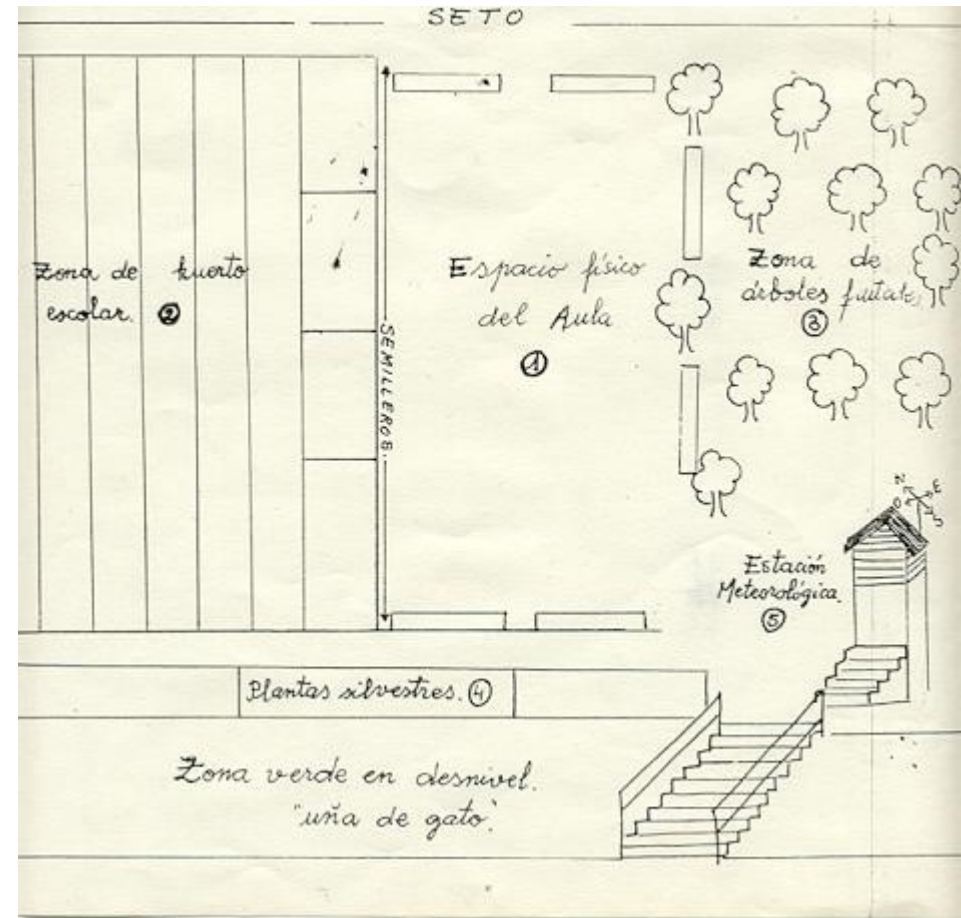 SETO
Zona de huerto
escolar. 2
SEMILLEROS
Espacio físico
del Aula
1
Zona de
árboles frutales
3
N
E
O
S
Estación
Meteorológica.
5
Plantas silvestres. 4
Zona verde en desnivel.
"uña de gato".